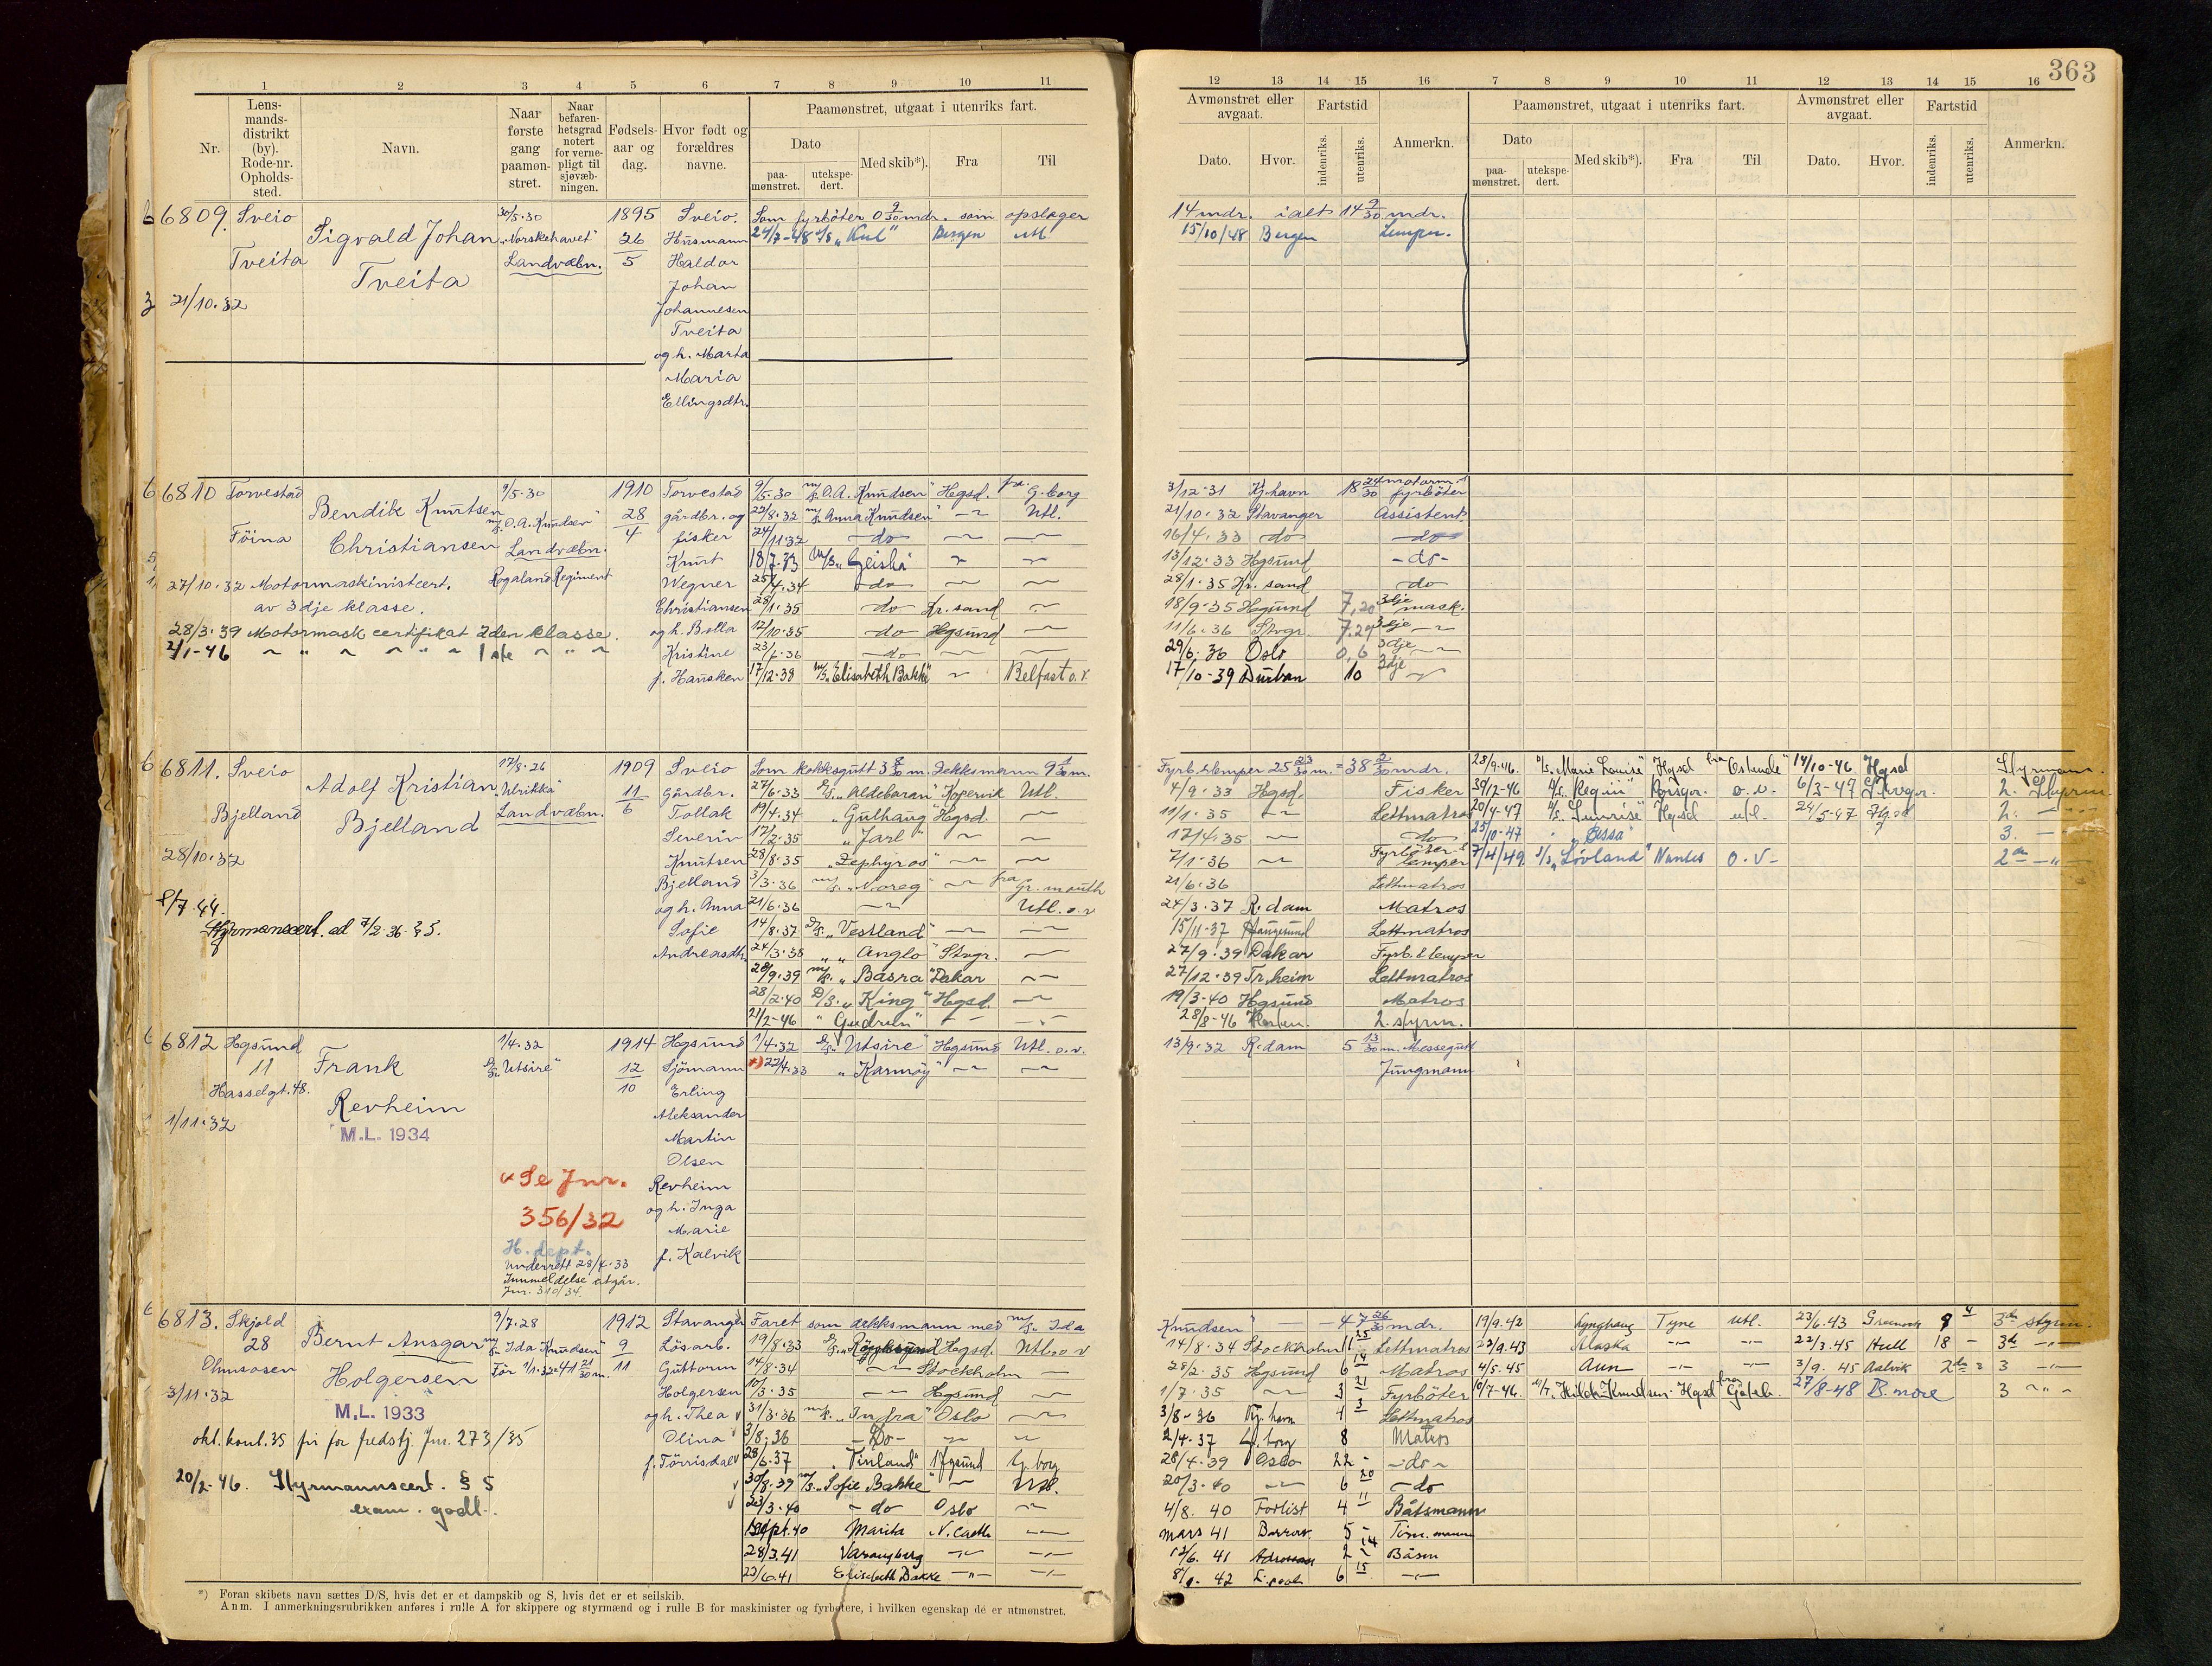 363
1 2 3 4 5 6 7 8 9 10 11
Nr.
Lens-
mands-
distrikt
(by).
Rode-nr.
Opholds-
sted.
Navn.
Naar
første
gang
paamøn-
stret.
Naar
befaren-
hetsgrad
notert
for verne-
pligt til
sjøvæb-
ningen.
Fødsels-
aar og
dag.
Hvor født og
forældres
navne.
Paamønstret, utgaat i utenriks fart.
Dato
paa-
mønstret.
utekspe-
dert.
Med skib*).
Fra
Til
12 13 14 15 16 7 8 9 10 11 12 13 14 15 16
Avmønstret eller
avgaat.
Dato.
Hvor.
Fartstid
indenriks.
utenriks.
Anmerkn.
Paamønstret, utgaat i utenriks fart.
Dato
paa-
mønstret.
utekspe-
dert.
Med skib*).
Fra
Til
Avmønstret eller
avgaat.
Dato.
Hvor.
Fartstid
indenriks.
utenriks.
Anmerkn.
6809. Sveio
Tveita
21/10.32
Sigvald Johan
Tveita
30/5.30
"Norskehavet"
Landvæbn.
1895
26
5
Sveio.
Husmann
Haldor
Johan
Johannesen
Tveita
og h. Marta
Maria
Ellingsdtr.
Som fyrbøter 0 9/30 mdr. som opslager
14 mdr. ialt 14 9/30 mdr.
24/7-48 Bergen Utl
15/10/48 Bergen Lemper.
6810 Torvestad
Föina
Bendik Knutsen
Christiansen
9/5.30
m/s "O.A. Knudsen"
Landvæbn.
Rogaland Regiment
27/10.32 Motormaskinistcert.
av 3dje klasse.
28/3.39 Motormask certifikat 2den klasse.
2/1-46 ~ " ~ ~ " ~ 1ste ~ " ~
1910
28
4
Torvestad
gårdbr. og
fisker
Knut
Wegner
Christiansen
og h. Bolla
Kristine
f. Hausken
9/5.30 m/s "O.A. Knudsen" Hgsd. fra G.borg 3/12-31 Kj.havn 18 24/30 motorm. fyrböter
22/8.32 m/s "Anna Knudsen" -~- Utl. 21/10.32 Stavanger Assistent.
24/11.32 -do- 16/4.33 do -do-
18/7.33 M/S "Geisha" 13/12.33 Hgsund -do-
25/4.34 -do- 28/1.35 Kr.sand -do
28/1.35 -do- Kr.sand 18/9.35 Hgsund 7,20 3dje mask.
12/10.35 -do- Hgsund 11/6.36 Stvgr. 7.29 3dje
23/6.36 -do- 29/6.36 Oslo 0,6 3dje
17/12.38 M/S "Elisabeth Bakke" Belfast o.v 17/10-39 Durban 10 3dje
6811. Sveio
Bjelland
28/10.32
8/7.44.
Styrmanscert. ed 7/2.36. § 5.
Adolf Kristian
Bjelland
17/8.26
"Ulrikka"
Landvæbn.
1909
11
6
Sveio
Gårdbr.
Tollak
Severin
Knutsen
Bjelland
og h. Anna
Sofie
Andreasdtr.
Som kokksgutt 3 m. Dekksmann 9 m. Fyrb. & lemper 25 23/30 m. = 38 mdr.
27/6.33 D/S "Aldebaran" Kopervik Utl. 4/9.33 Hgsd. Fisker
19/4.34 "Gulhaug" Hgsd. 11/1.35 Lettmatros
17/2.35 "Jarl" 17/4.35 do
28/8.35 "Zephyros" 7/1.36 Fyrböter & lemper
3/3.36 m/s "Noreg" fra Gr.mouth 21/6.36 Lettmatros
21/6.36 Utl. o.v 24/3.37 R.dam Matros
14/8.37 D/S "Vestland" 15/11.37 Haugesund Lettmatros
24/3.38 " "Anglo" Stvgr. 27/9.39 Dakar Fyrb. & lemper
28/9.39 m/s "Basra" Dakar 27/12.39 Tr.heim Lettmatros
28/2.40 D/S "King" Hgsd. 19/3-40 Hgsund Matros
21/2-46 "Gudrun" 28/8-46 2. styrm.
23/9.46. "Marie Louise" Hgsd fra Ostende 14/10-46 Hgsd Styrmann.
30/12-46 "Regin" o.v. 6/3-47 Stvgr. 2. Styrm.
20/4-47 "Sunrise" Hgsd utl. 24/5-47 Hgsd 2. -
25/10-47 "Ossa" 3. -
7/4/49. "Lovland" Nantes o.v- 2en -"-
6812 Hgsund
11
Hasselgt. 48.
1/11.32
Frank
Revheim
M.L. 1934
1/4.32
D/S "Utsire"
1914
12
10
Hgsund
Sjömann
Erling
Aleksander
Martin
Olsen
Revheim
og h. Inga
Marie
f. Kalvik
1/4.32 D/S "Utsire" Hgsund Utl. o.v. 13/9.32 R.dam 5 13/30 m. Messegutt
x) 22/4.33 "Karmøy" Jungmann
x Se Jnr.
356/32
H. dept.
Underrett 28/4.33
Innmeldelse utgår.
Jnr. 310/34.
6813. Skjold
28
Ølmsosen
3/11.32
Bernt Ansgar
Holgersen
M.L. 1933
okt. kont. 35 fri for fredstj. Jnr. 273/35
20/2-46. Styrmannscert. § 5
exam. godk.
9/7.28
m/s "Ida Knudsen"
Før 1/1.33 = 41 21/30 m.
1912
9
11
Stavanger
Lösarb.
Guttorm
Holgersen
og h. Thea
Olina
f. Törrisdal
Faret som dekksmann med m/s "Ida Knudsen" 47 26/30 mdr.
19/8.33 D/S Hgsd. Utl. o v 14/8.34 Stockholm 11 25 Lettmatros
14/8.34 Stockholm 28/2.35 Hgsund 6 14 Matros
10/3.35 Hgsund 1/7.35 3 21 Fyrböter
31/3.36 m/s "Indra" Oslo 3/8-36 Kj.havn 4 3 Lettmatros
3/8.36 -Do- 2/4-37 G.borg 8 Matros
28/6.37 "Vinland" Hgsund G.borg 28/4.39 Oslo 22 - -do-
30/8.39 m/s "Sofie Bakke" Utl. 20/3.40 6 20 -do
23/3.40 -do Oslo 4/8.40 Forlist 4 11 Båtsmann
Sept.40 Marita N.Castle mars 41 Barrow. 5 - Tim.mann
28/3.41 Varangberg 12/6.41 2 14 Båsm
22/6.41 Elisabeth Bakke 8/1.42 L.pool 6 15
19/9.42 Lynghaug Tyne Utl. 23/6.43 Greenock 9 4 3de styrm.
22/9.43 Alaska 22/3.45 Hull 18 - 3d
4/5.45 Aun 3/9.45 3
10/7-46. M/T "Hilda Knudsen" Hgsd fra Göteb. 27/8-48 B.more 3
*) Foran skibets navn sættes D/S, hvis det er et dampskib og S, hvis det er et seilskib.
Anm. I anmerkningsrubrikken anføres i rulle A for skippere og styrmænd og i rulle B for maskinister og fyrbøtere, i hvilken egenskap de er utmønstret.